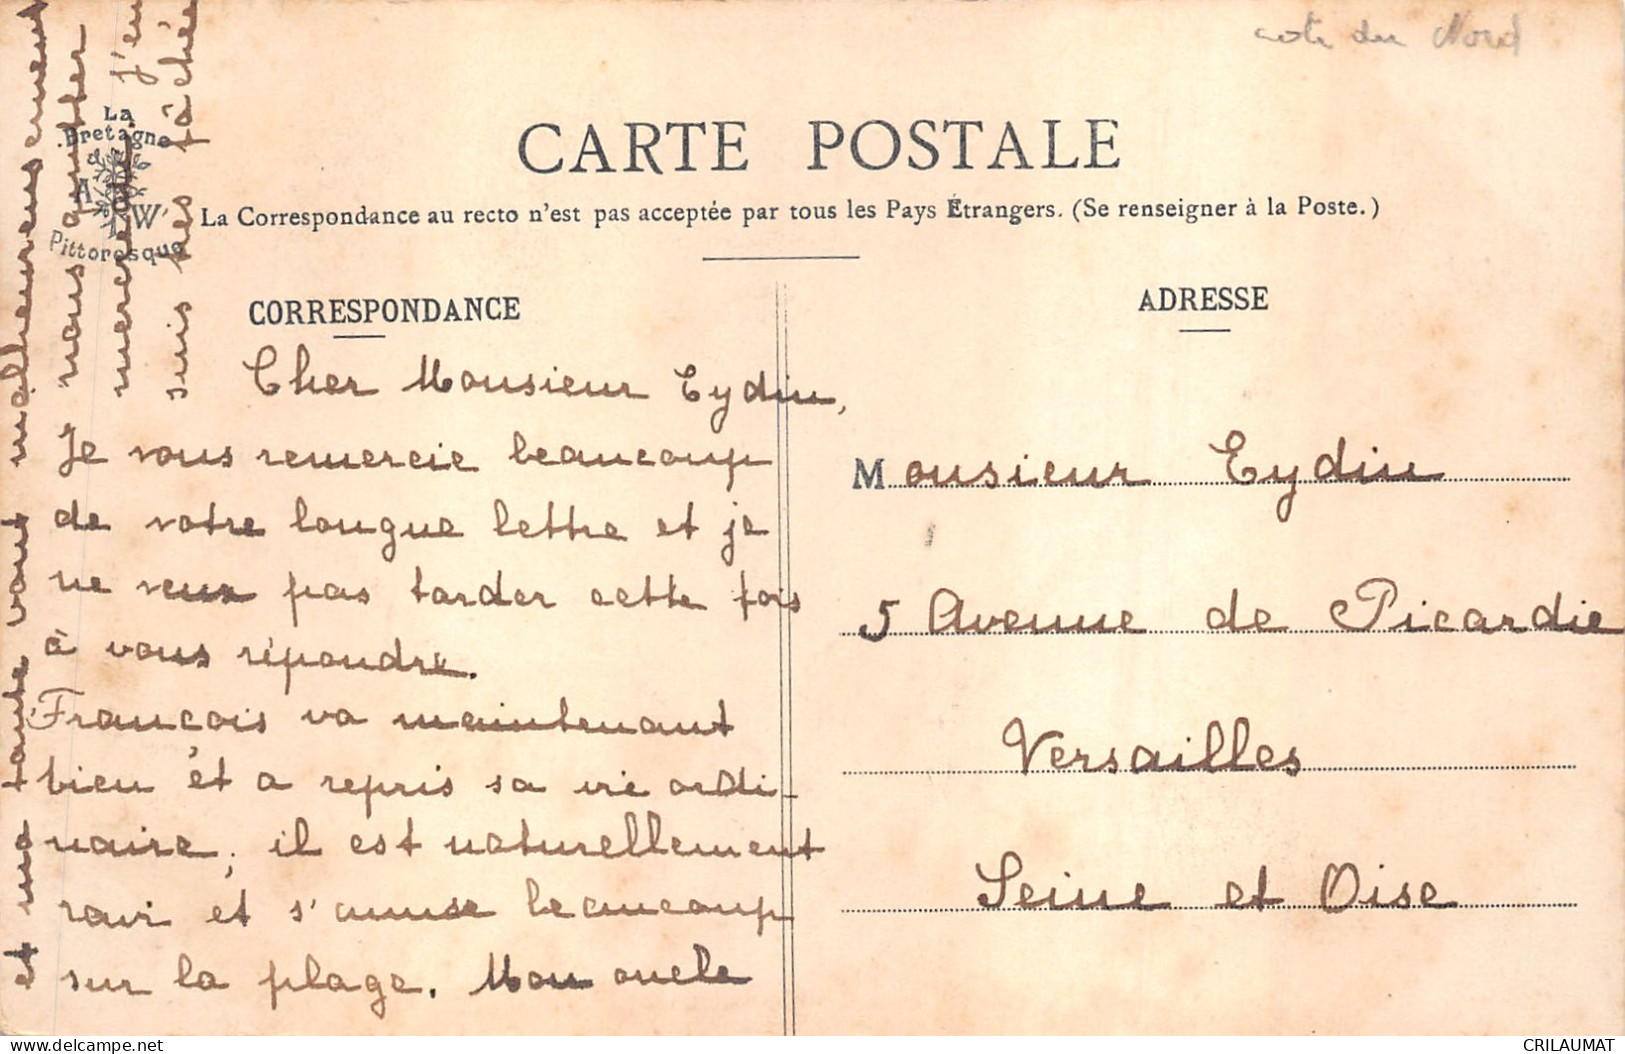 cote du Nord
La
Bretagne
A W
Pittoresque
CARTE POSTALE
La Correspondance au recto n'est pas acceptée par tous les Pays Étrangers. (Se renseigner à la Poste.)
CORRESPONDANCE
Cher Monsieur Eydin,
Je vous remercie beaucoup
de votre longue lettre et je
ne veux pas tarder cette fois
à vous répondre.
Francois va maintenant
bien et a repris sa vie ordi-
naire, il est naturellement
ravi et s'amuse beaucoup
sur la plage. Mon oncle
et ma tante vont malheureusement
nous quitter
mercredi j'en
suis très fâchée
ADRESSE
Monsieur Eydin
5 Avenue de Picardie
Versailles
Seine et Oise
delcampe.net
CRILAUMAT